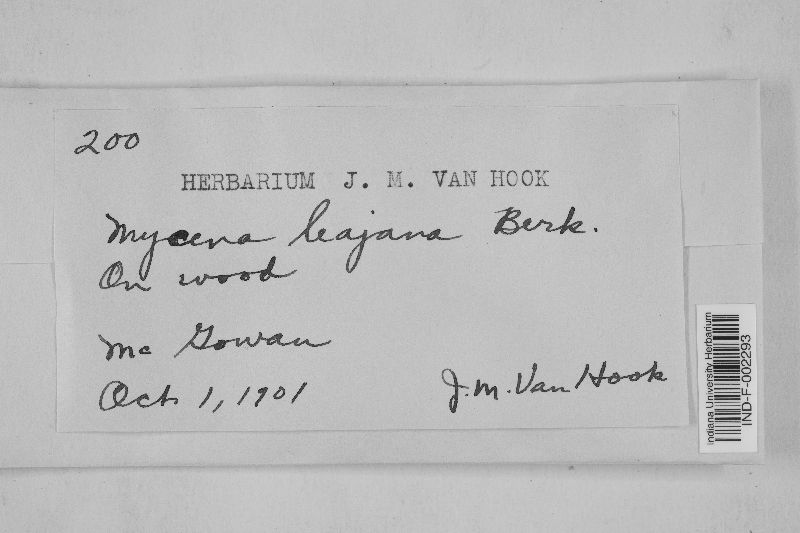 200
HERBARIUM J. M. VAN HOOK
Mycena leajana Berk.
On wood
Mc Gowan
Oct 1, 1901
J. M. Van Hook
Indiana University Herbarium
IND-F-002293